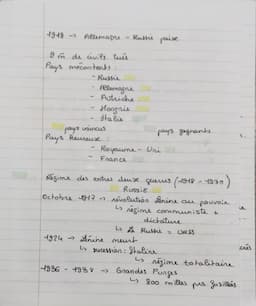 1918 → Allemagne - Russie paix
9 m de civils tués
Pays mécontents :
- Russie
- Allemagne
- Autriche
- Hongrie
- Italie
pays vaincus pays gagnants
Pays Heureux :
- Royaume-Uni
- France
Régime des entres deux guerres (1918 - 1939)
Russie
Octobre 1917 → révolution Lénine au pouvoir
↳ régime communiste +
dictature
↳ La Russie = URSS
1924 → Lénine meurt
↳ succession : Staline
↳ régime totalitaire
1936 - 1938 → Grandes Purges
↳ 800 milles pers fusillées